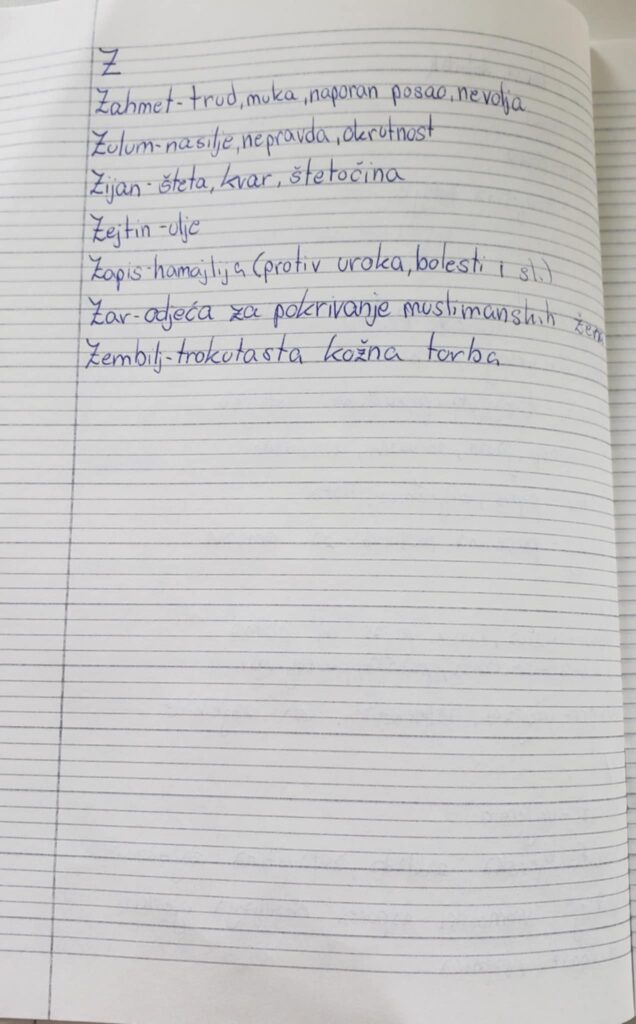 Z
Zahmet-trud, muka, naporan posao, nevolja
Zulum-nasilje, nepravda, okrutnost
Zijan-šteta, kvar, štetočina
Zejtin-ulje
Zapis-hamajlija (protiv uroka, bolesti i sl.)
Zar-odjeća za pokrivanje muslimanskih žena
Zembilj-trokutasta kožna torba